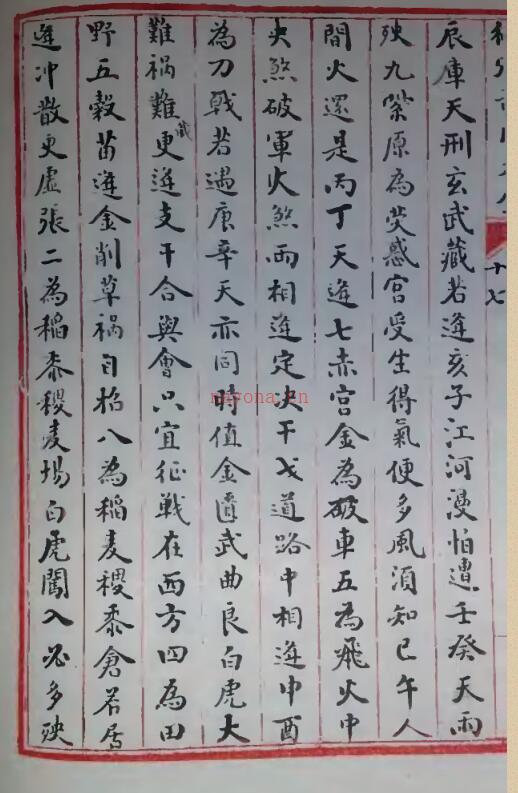 十七
辰庫天刑玄武藏若逢亥子江河漫怕遭壬癸天雨
殃九紫原為熒惑宮受生得氣便多風須知巳午人
間火還是丙丁天逢七赤宮金為破軍五為飛火中
央煞破軍火煞兩相逢定火干戈道路中相逢申酉
為刀戟若遇庚辛天亦同時值金匱武曲良白虎大
難禍難藏更逢支干合與會只宜征戰在西方四為田
野五穀苗逢金削草禍自招八為稻麦稷黍倉若居
逢冲散更虛張二為稲黍稷麦場白虎闖入必多殃
nayona.cn